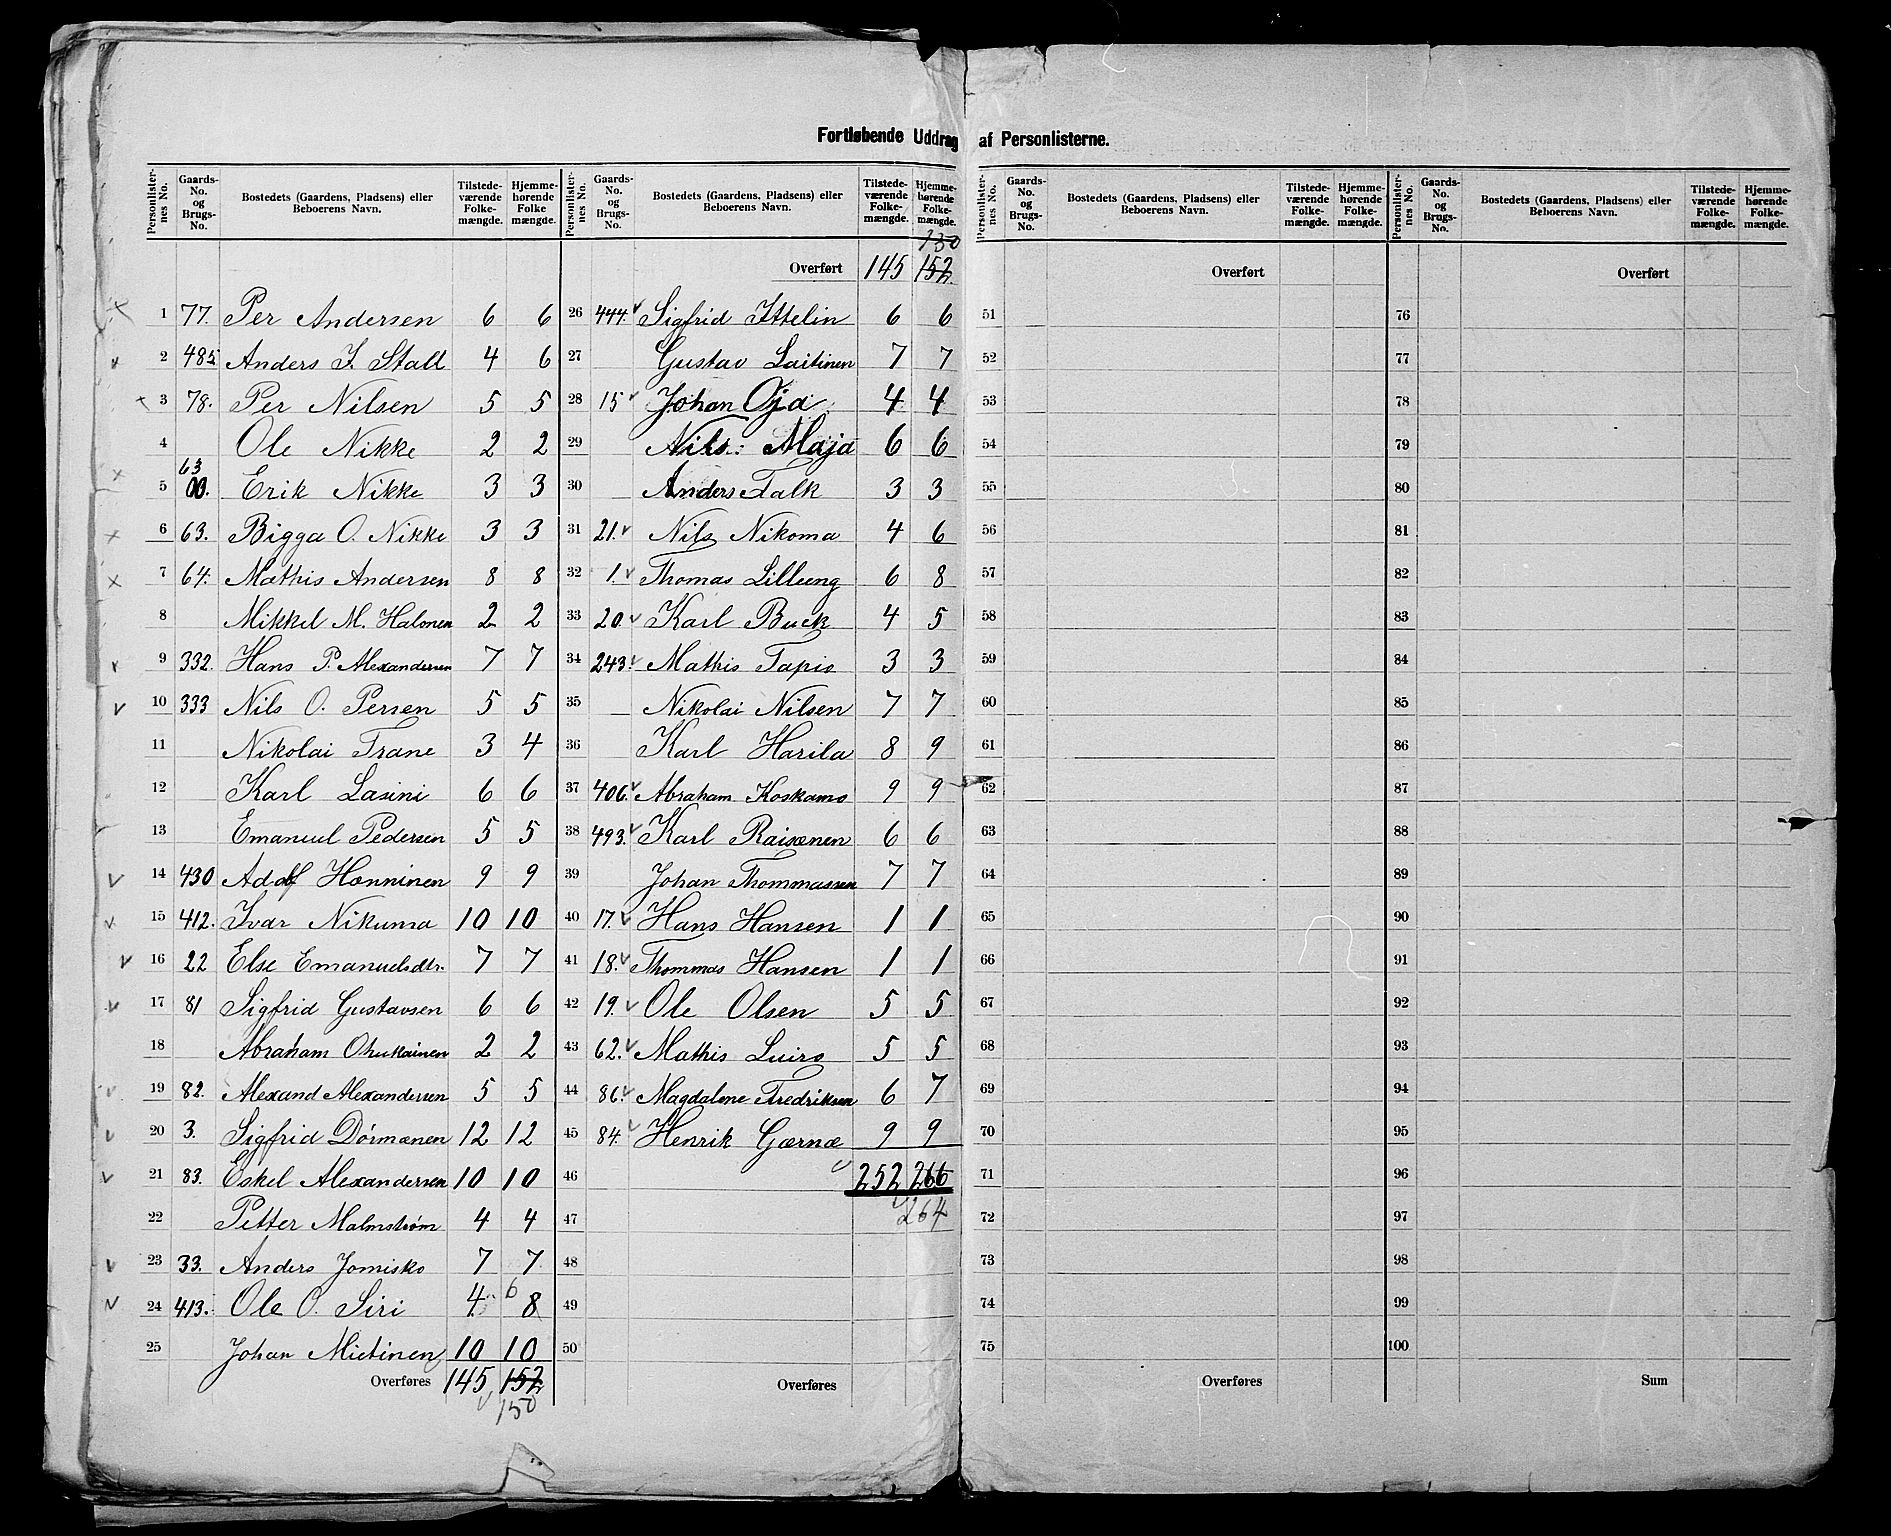 Fortløbende Uddrag af Personlisterne.
Personlisternes No. Gaards-No. og Brugs-No. Bostedets (Gaardens, Pladsens) eller Beboerens Navn. Tilstedeværende Folkemængde. Hjemmehørende Folkemængde.
1 77. Per Andersen 6 6
2 485 Anders J. Stall 4 6
3 78. Per Nilsen 5 5
4 Ole Nikke 2 2
63
5 00. Erik Nikke 3 3
6 63. Bigga O. Nikke 3 3
7 64. Mathis Andersen 8 8
8 Mikkel M. Halonen 2 2
9 332. Hans P. Alexandersen 7 7
10 333 Nils O. Persen 5 5
11 Nikolai Trane 3 4
12 Karl Lasini 6 6
13 Emanuel Pedersen 5 5
14 430 Adolf Hænninen 9 9
15 412. Ivar Nikuma 10 10
16 22 Else Emanuelsdtr. 7 7
17 81 Sigfrid Gustavsen 6 6
18 Abraham Ohukainen 2 2
19 82. Alexand Alexandersen 5 5
20 3. Sigfrid Dörmænen 12 12
21 83. Eskel Alexandersen 10 10
22 Petter Malmstrøm 4 4
23 33. Anders Jomisko 7 7
24 413. Ole O. Siri 4 6 8
25 Johan Mietinen 10 10
Overføres 145 152
150
Personlisternes No. Gaards-No. og Brugs-No. Bostedets (Gaardens, Pladsens) eller Beboerens Navn. Tilstedeværende Folkemængde. Hjemmehørende Folkemængde.
150
Overført 145 152
26 444. Sigfrid Ittelin 6 6
27 Gustav Laitinen 7 7
28 15 Johan Oja 4 4
29 Nils Maja 6 6
30 Anders Falk 3 3
31 21. Nils Nikoma 4 6
32 1. Thomas Lilleeng 6 8
33 20. Karl Buck 4 5
34 243. Mathis Tapio 3 3
35 Nikolai Nilsen 7 7
36 Karl Harila 8 9
37 406. Abraham Koskamo 9 9
38 493. Karl Raisænen 6 6
39 Johan Thommassen 7 7
40 17. Hans Hansen 1 1
41 18. Thommas Hansen 1 1
42 19. Ole Olsen 5 5
43 62. Mathis Luiro 5 5
44 86. Magdalene Fredriksen 6 7
45 84. Henrik Gærnæ 9 9
46 252 266
47 264
48
49
50
Overføres
Personlisternes No. Gaards-No. og Brugs-No. Bostedets (Gaardens, Pladsens) eller Beboerens Navn. Tilstedeværende Folkemængde. Hjemmehørende Folkemængde.
Overført
51
52
53
54
55
56
57
58
59
60
61
62
63
64
65
66
67
68
69
70
71
72
73
74
75
Overføres
Personlisternes No. Gaards-No. og Brugs-No. Bostedets (Gaardens, Pladsens) eller Beboerens Navn. Tilstedeværende Folkemængde. Hjemmehørende Folkemængde.
Overført
76
77
78
79
80
81
82
83
84
85
86
87
88
89
90
91
92
93
94
95
96
97
98
99
100
Sum